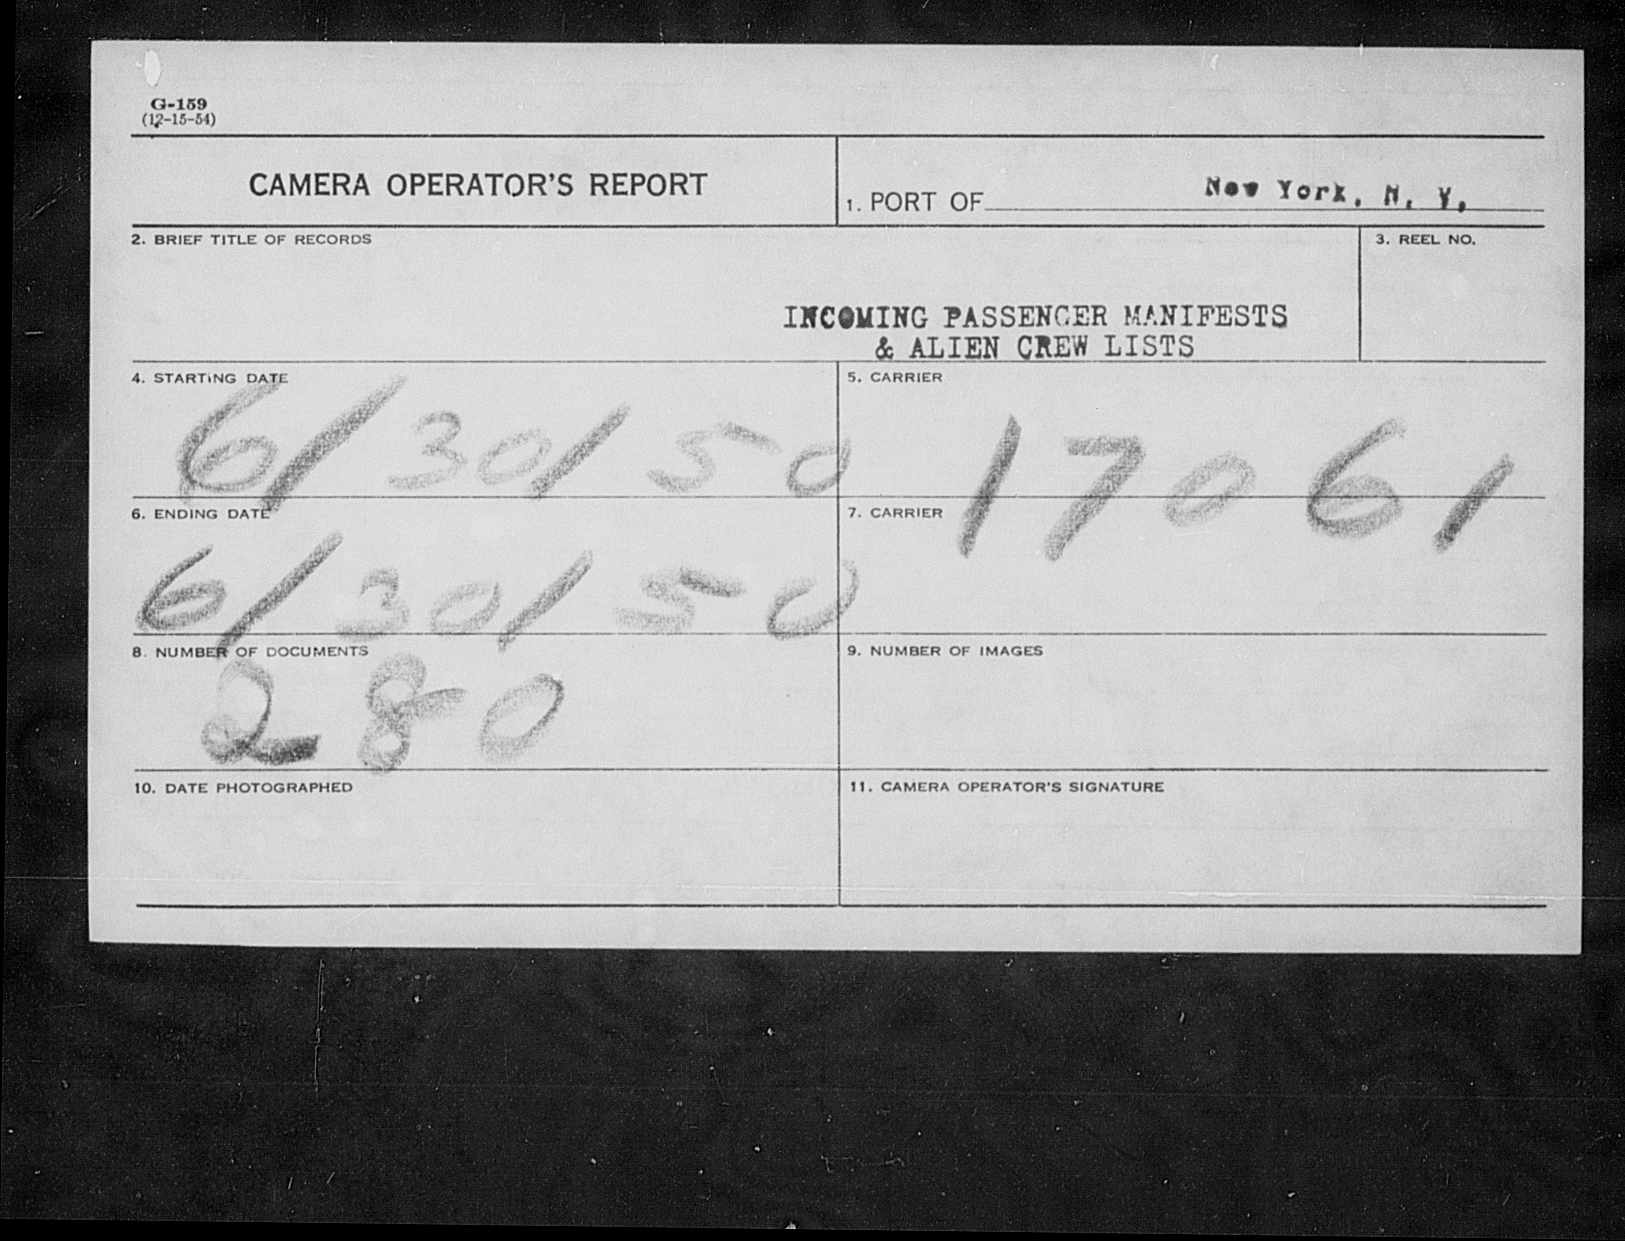 G-159
(12-15-54)
CAMERA OPERATOR'S REPORT
1. PORT OF New York, N. Y.
2. BRIEF TITLE OF RECORDS
3. REEL NO.
INCOMING PASSENGER MANIFESTS
& ALIEN CREW LISTS
4. STARTING DATE
6/30/50
5. CARRIER
17061
6. ENDING DATE
6/30/50
7. CARRIER
8. NUMBER OF DOCUMENTS
280
9. NUMBER OF IMAGES
10. DATE PHOTOGRAPHED
11. CAMERA OPERATOR'S SIGNATURE